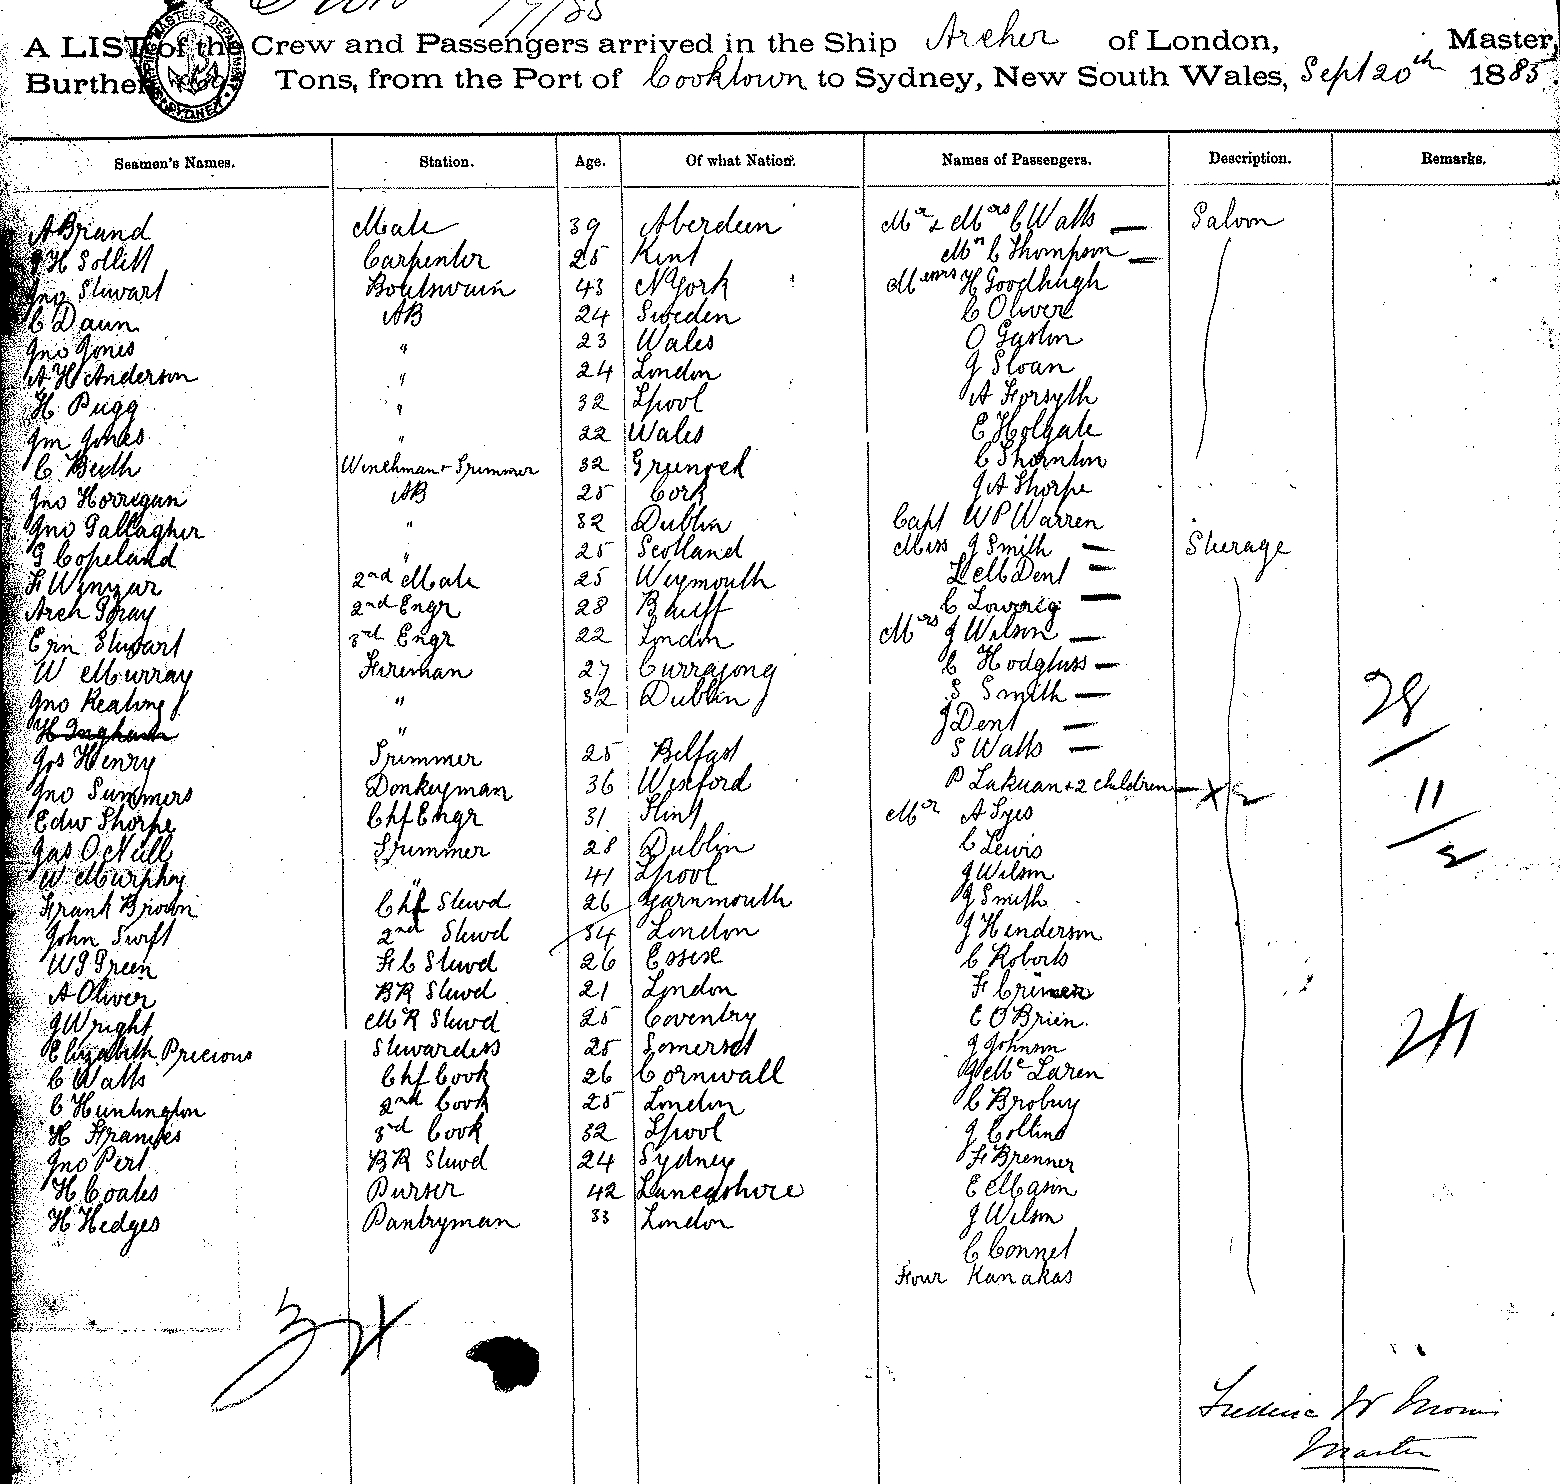 19/9/85
A LIST of the Crew and Passengers arrived in the Ship Archer of London, Master,
Burthen Tons, from the Port of Cooktown to Sydney, New South Wales, Sept 20th 1885.
Seamen's Names. Station. Age. Of what Nation. Names of Passengers. Description. Remarks.
A Brand Mate 39 Aberdeen Mr & Mrs C Watts — Saloon
H Sollitt Carpenter 25 Kent Mrs C Thompson —
Jno Stewart Boatswain 43 N York Messrs H Goodhugh
C Daun AB 24 Sweden C Oliver
Jno Jones " 23 Wales O Gaston
A H Anderson " 24 London J Sloan
H Pugg " 32 Lpool A Forsyth
Jm Jones " 22 Wales E Holgate
C Beith Winchman & Trimmer 32 Greenock C Thornton
Jno Horrigan AB 25 Cork J A Thorpe
Jno Gallagher " 32 Dublin Capt W P Warren
G Copeland " 25 Scotland Miss J Smith — Steerage
F Winzar 2nd Mate 25 Weymouth L McDent —
Arch Gray 2nd Engr 28 Banff C Lowrie —
Ern Stewart 3rd Engr 22 London Mrs J Wilson —
W Murray Fireman 27 Currajong C Hodgkiss —
Jno Keating " 32 Dublin S Smith —
H Ingham " J Dent —
Jos Henry Trimmer 25 Belfast S Watts —
Jno Summers Donkeyman 36 Wexford P Lakuan + 2 children — X 2
Edw Thorpe Chf Engr 31 Flint Mr A Syes
Jas O'Neill Trimmer 28 Dublin C Lewis
W Murphy " 41 Lpool J Wilson
Frank Brown Chf Stewd 26 Yarnmouth J Smith
John Swift 2nd Stewd 34 London J Henderson
W J Green F C Stewd 26 Essex C Roberts
A Oliver BR Stewd 21 London F
J Wright MR Stewd 25 Coventry E O'Brien.
Elizabeth Precious Stewardess 25 Somerset J Johnson
C Watts Chf Cook 26 Cornwall J McLaren
C Huntington 2nd Cook 25 London C Brobuy
H Frances 3rd Cook 32 Lpool J Collins
Jno Pert BR Stewd 24 Sydney F Brenner
H Coates Purser 42 Lancashire E Mason
H Hedges Pantryman 33 London J Wilson
C Connel
Four Kanakas
28
11
2
Frederic W
Master